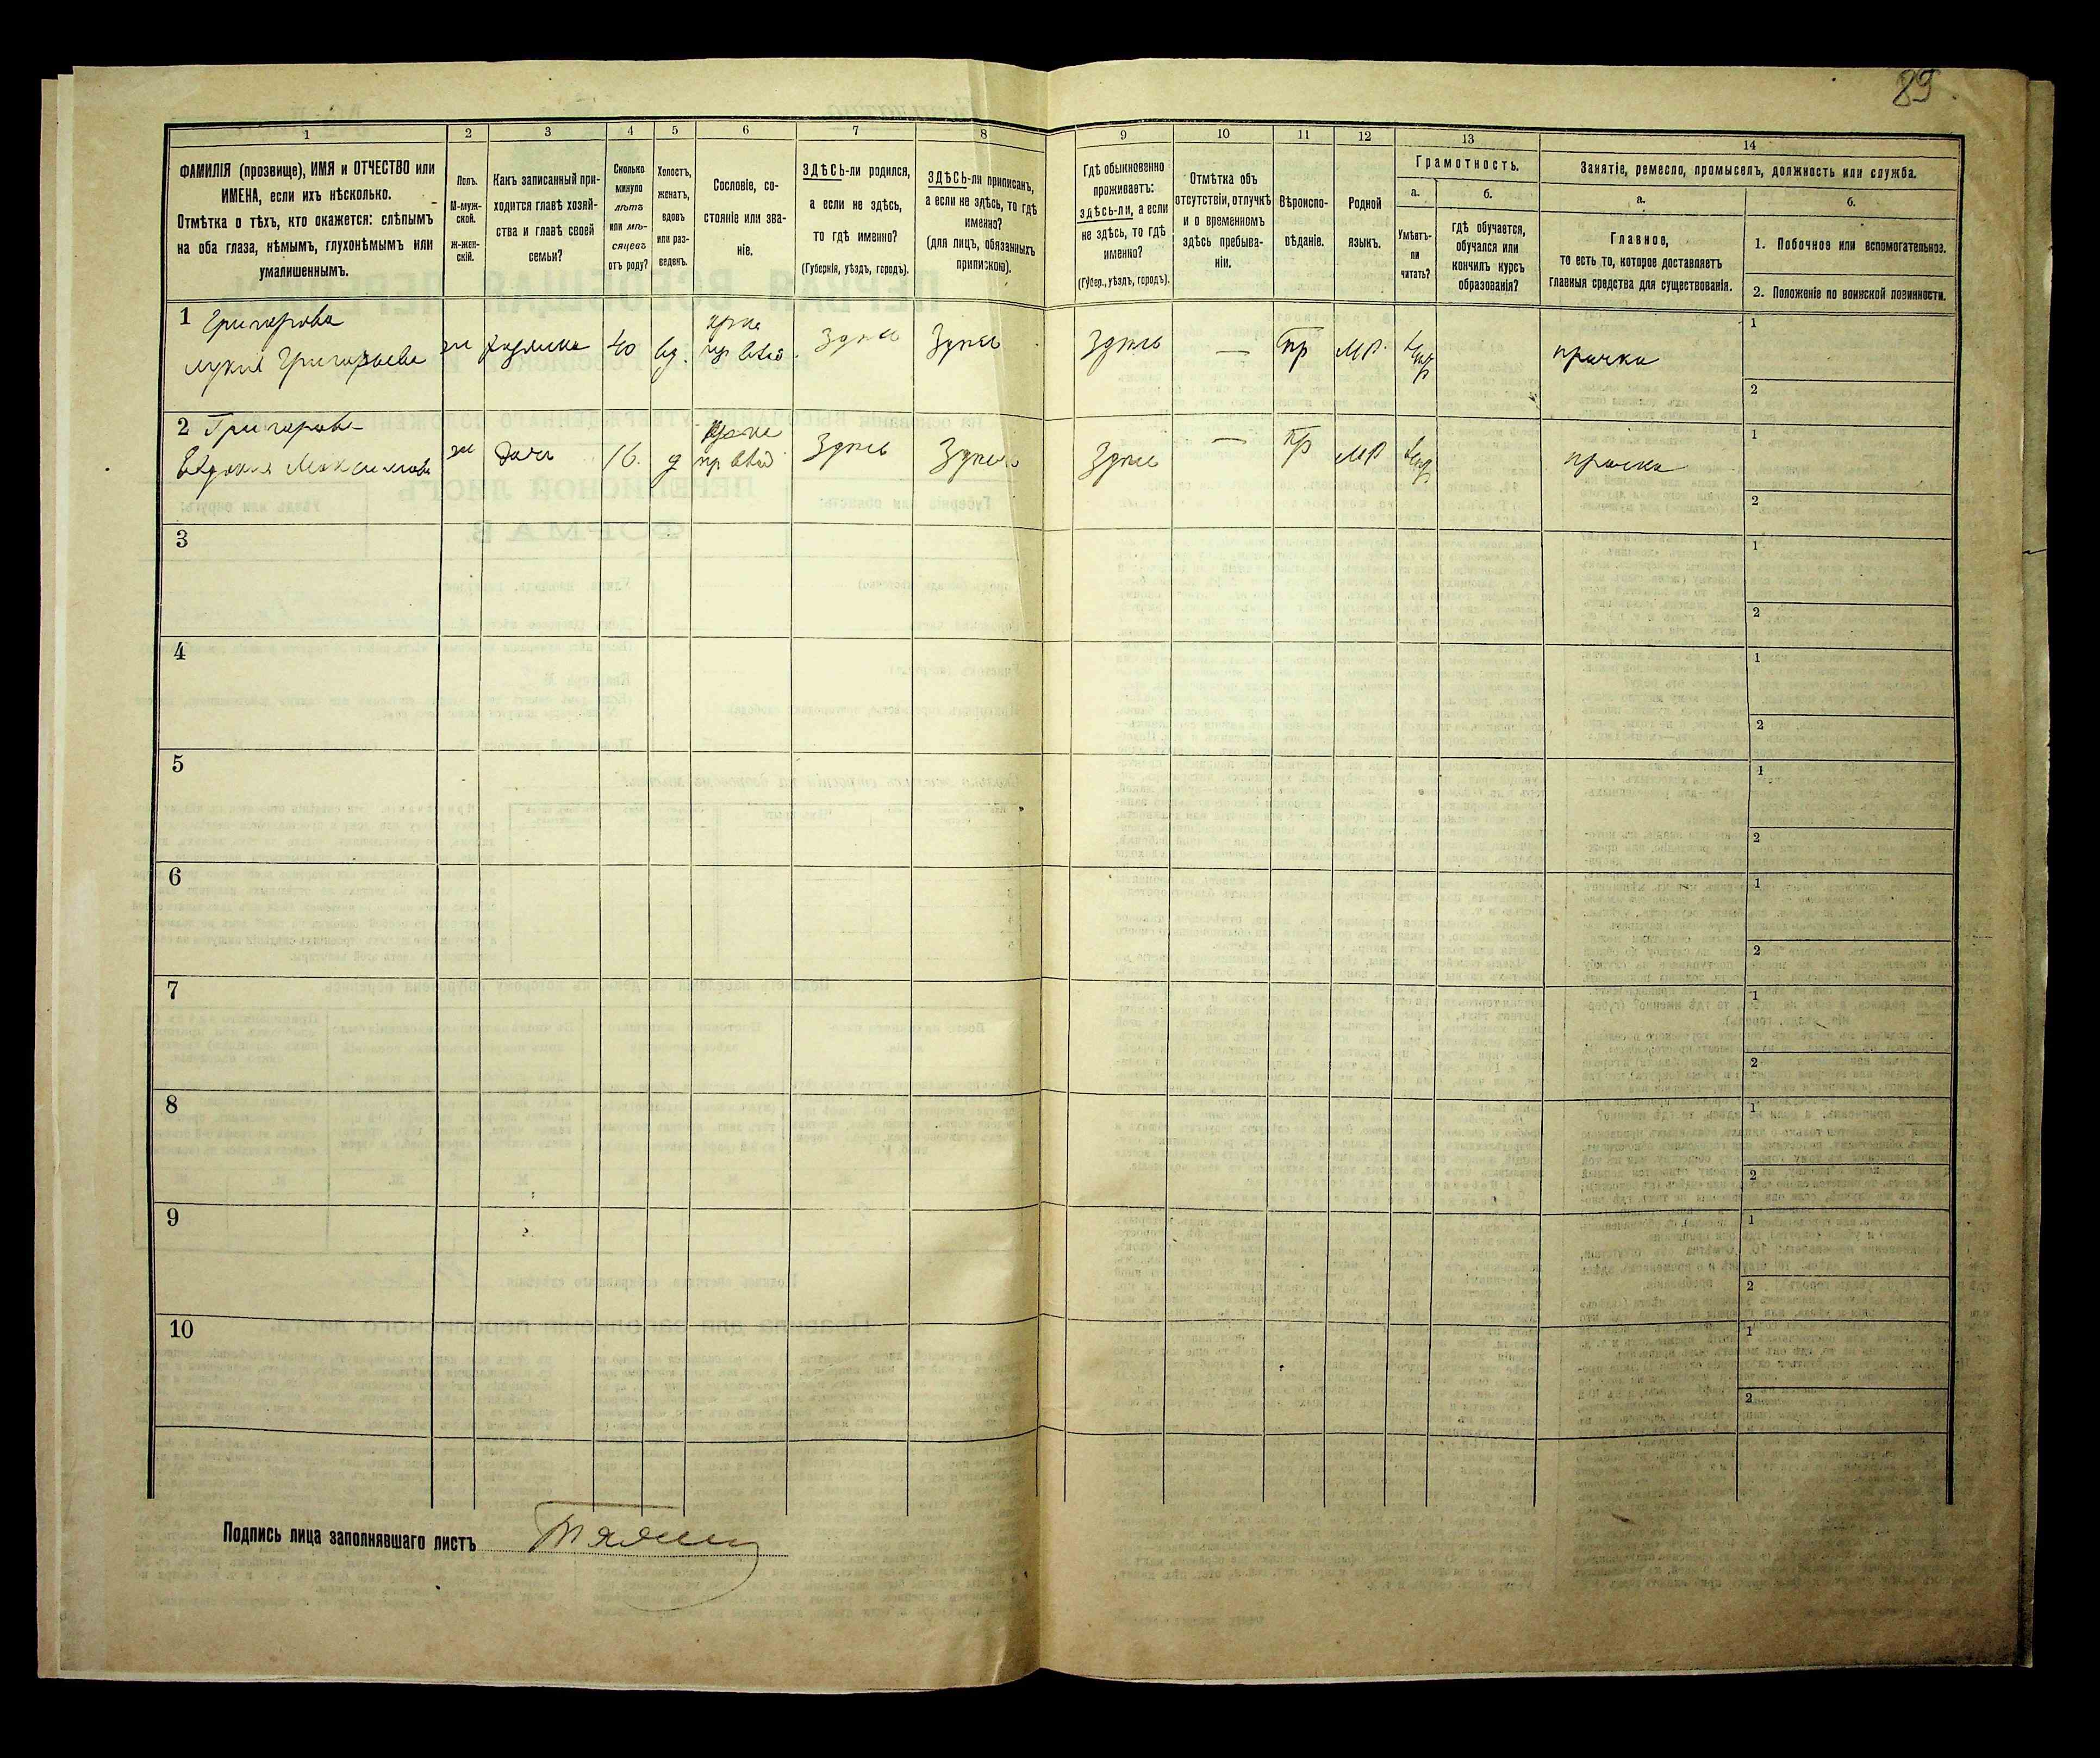 89
1
2
3
4
5
6
7
8
9
10
11
12
13
14
ФАМИЛІЯ (прозвище), ИМЯ и ОТЧЕСТВО или
ИМЕНА, если ихъ нѣсколько.
Отмѣтка о тѣхъ, кто окажется: слѣпымъ
на оба глаза, нѣмымъ, глухонѣмымъ или
умалишеннымъ.
Полъ.
М-муж-
ской.
ж-жен-
скій.
Какъ записанный при-
ходится главѣ хозяй-
ства и главѣ своей
семьи?
Сколько
минуло
лѣтъ
или мѣ-
сяцевъ
отъ роду?
Холостъ,
женатъ,
вдовъ
или раз-
веденъ.
Сословіе, со-
стояніе или зва-
ніе.
ЗДѢСЬ-ли родился,
а если не здѣсь,
то гдѣ именно?
(Губернія, уѣздъ, городъ).
ЗДѢСЬ-ли приписанъ,
а если не здѣсь, то гдѣ
именно?
(для лицъ, обязанныхъ
припискою).
Гдѣ обыкновенно
проживаетъ:
здѣсь-ли, а если
не здѣсь, то гдѣ
именно?
(Губер., уѣздъ, городъ).
Отмѣтка объ
отсутствіи, отлучкѣ
и о временномъ
здѣсь пребыва-
ніи.
Вѣроиспо-
вѣданіе.
Родной
языкъ.
Грамотность.
а.
Умѣетъ-
ли
читать?
б.
гдѣ обучается,
обучался или
кончилъ курсъ
образованія?
Занятіе, ремесло, промыселъ, должность или служба.
а.
Главное,
то есть то, которое доставляетъ
главныя средства для существованія.
б.
1. Побочное или вспомогательное.
2. Положеніе по воинской повинности.
1 Григорова
Григорьева
ж
хозяйка
40
вд.
Здѣсь
Здѣсь
Здѣсь
—
пр
МР.
прачка
1
2
2 Григорова
Евдокія Максимова
ж
дочь
16.
д
Здѣсь
Здѣсь
Здѣсь
—
пр
МР
прачка
1
2
3
1
2
4
1
2
5
1
2
6
1
2
7
1
2
8
1
2
9
1
2
10
1
2
Подпись лица заполнявшаго листъ